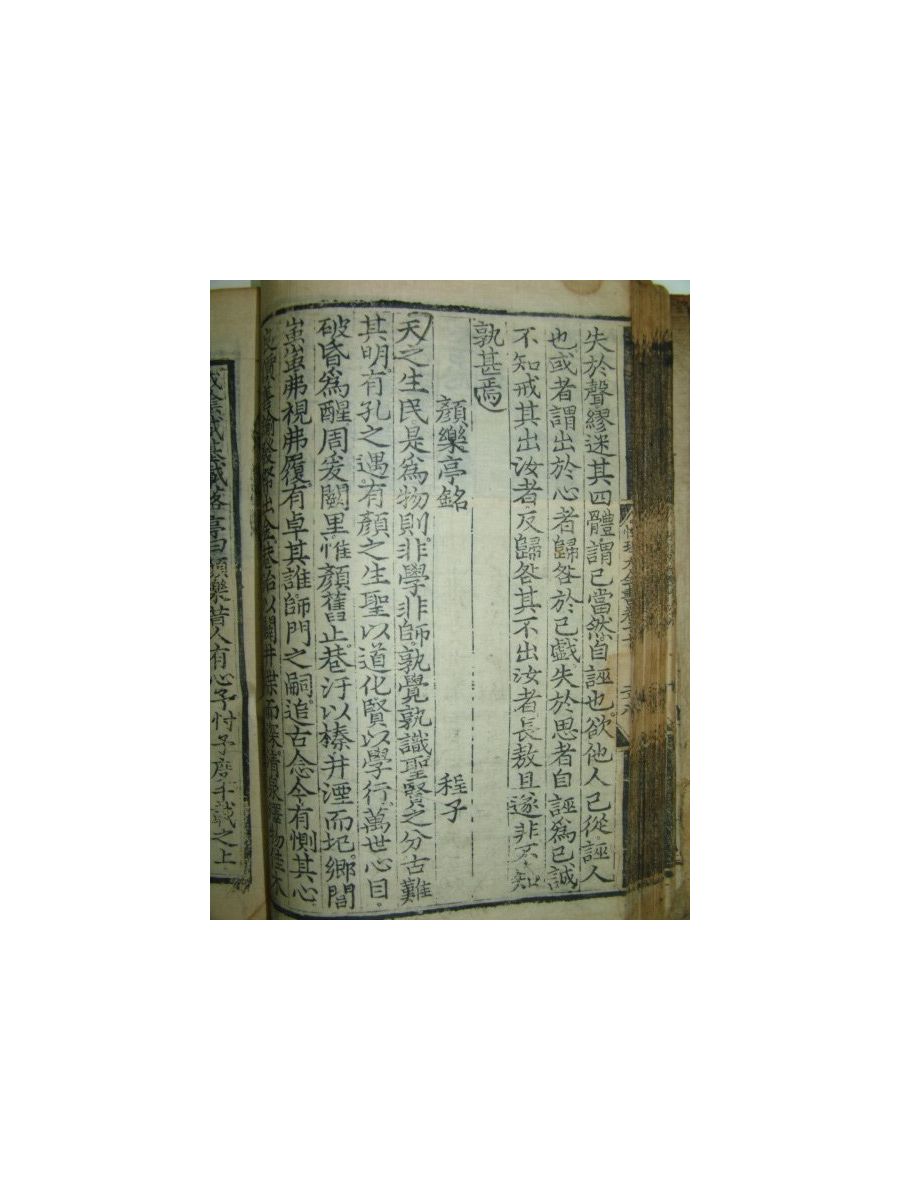 失於聲繆迷其四體謂已當然自誣也欲他人已從誣人
也或者謂出於心者歸咎於已戲失於思者自誣爲已誠
不知戒其出汝者反歸咎其不出汝者長敖且遂非不知
孰甚焉
顏樂亭銘 程子
天之生民是爲物則非學非師孰覺孰識聖賢之分古難
其明有孔之遇有顏之生聖以道化賢以學行萬世心目
破昏爲醒周爰闕里惟顏舊止巷汙以榛井湮而圮鄉閭
蚩蚩弗視弗履有卓其誰師門之嗣追古念今有惻其心
以闢井渫而深清
亭曰顏樂昔人有心予忖予度千載之上